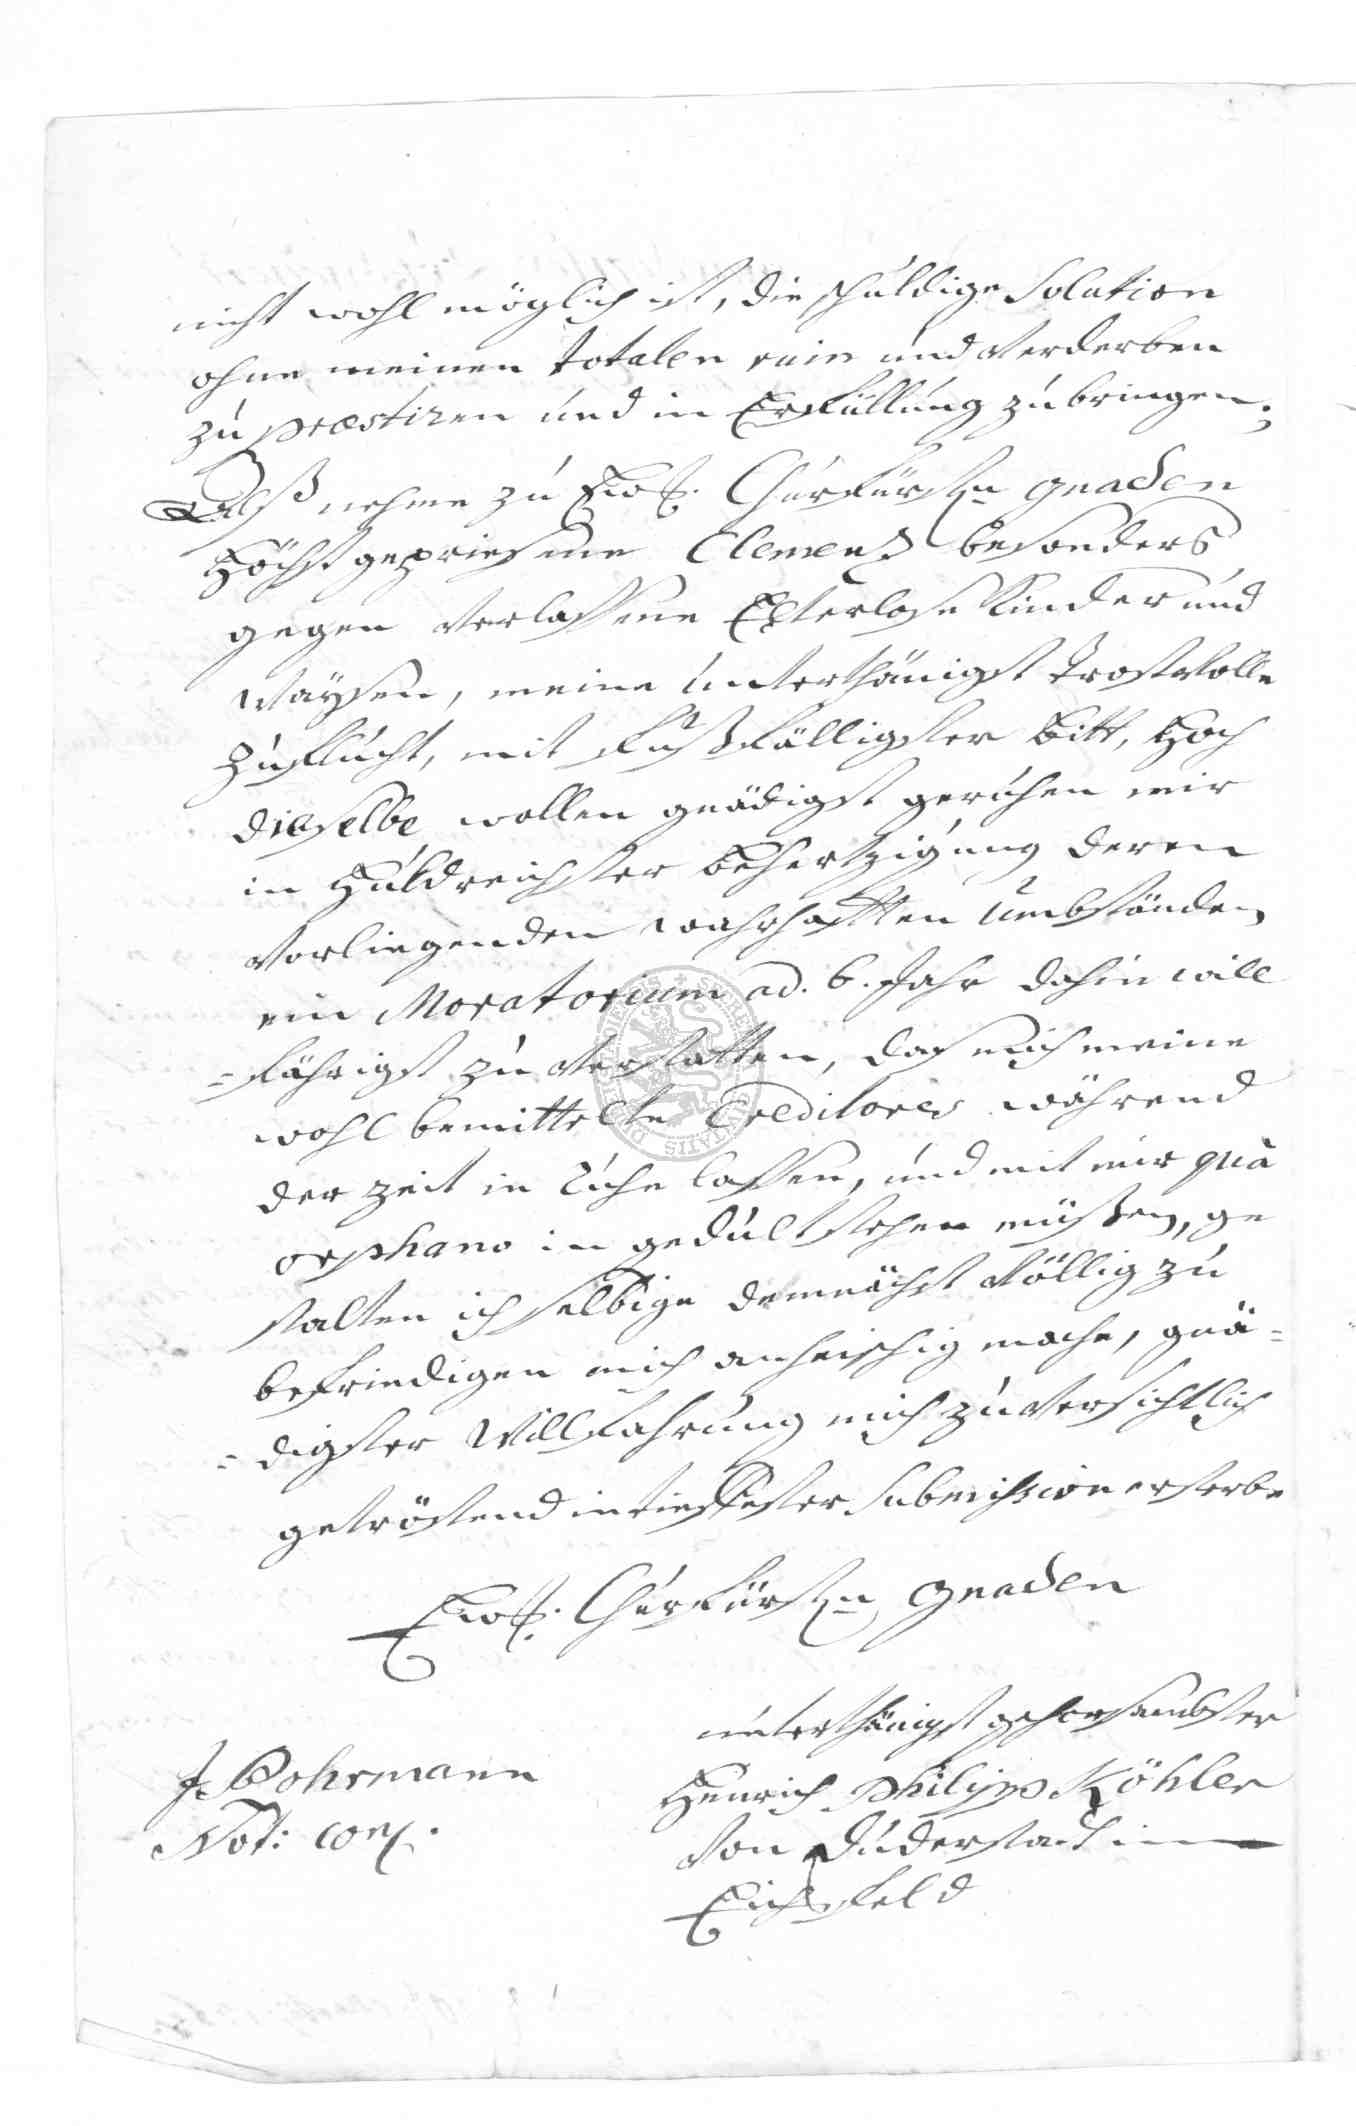 nicht wohl möglich ist, die schuldige Solution
ohne meinen totalen ruin und Verderben
zu præstiren und in Erfüllung zu bringen;
Alß nehme zu Ew. Churfürstn gnaden
Höchstgepriesene Clemenz besonders
gegen verlassene Elterlose Kinder und
Waysen, meine unterthänigst trostvolle
Zuflucht, mit fußfälligster bitt, Hoch
dieselbe wollen gnädigst geruhen mir
in Huldreichster behertzigung deren
vorliegenden wahrhafften Umbständen
ein Moratorium ad. 6. Jahr dahin will
=fährigst zu verstatten, daß mich meine
wohl bemittelte Creditores während
der zeit in ruhe lassen, und mit mir quà
orphano in gedult stehen müßen, ge
stalten ich selbige demnächst völlig zu
befriedigen mich anheischig mache, gnä=
=digster Willfahrung mich zuversichtlich
getröstend in tieffester Submission ersterbe
Ew. Churfürstn Gnaden
unterthänigst gehorsambster
Henrich Philipp Köhler
von Duderstadt im
Eichsfeld
J. Bohrmann
Not:
DUDERSTADIENSIS
CIVITATIS